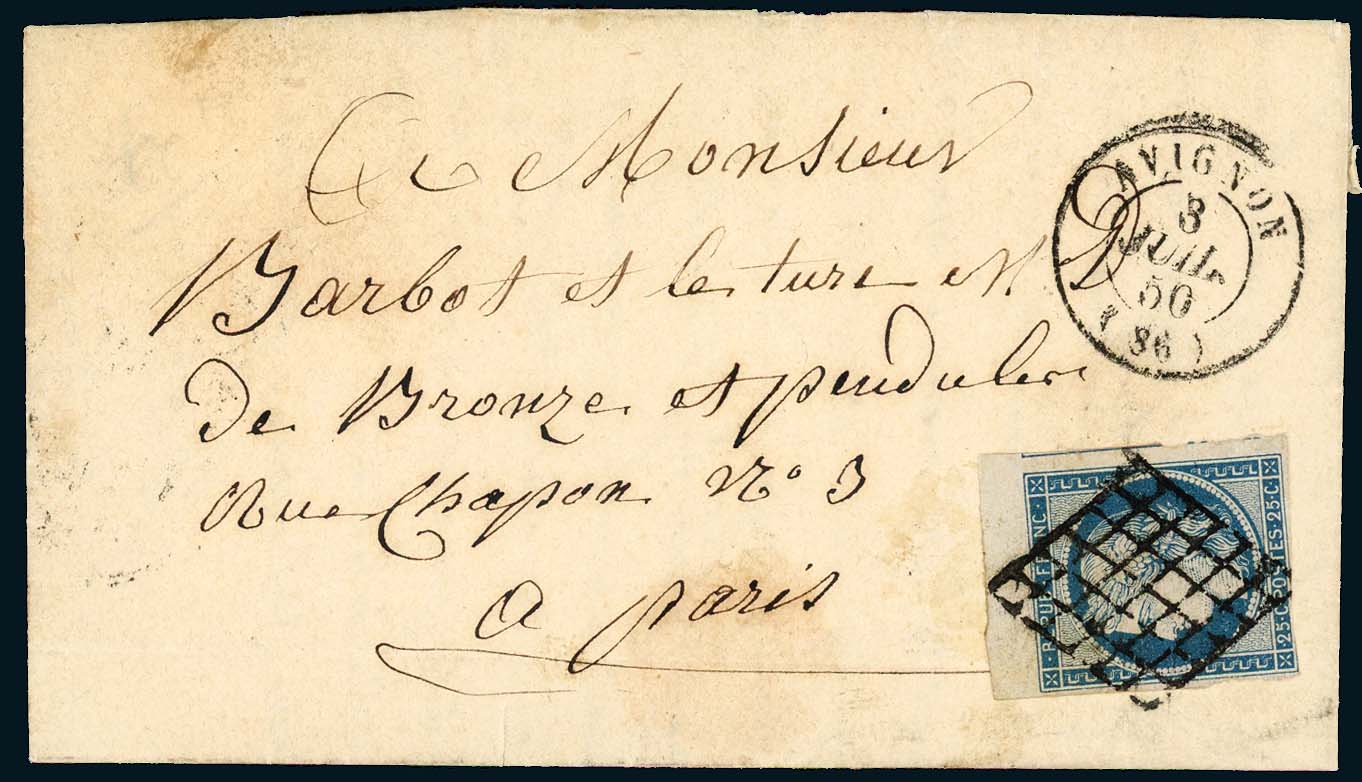 A Monsieur
Barbot et lecture M D
De Bronze et pendules
Rue Chapon N° 3
a paris
AVIGNON
3
JUIL.
50
(86)
REPUB. FRANC.
25 · C. POSTES · 25 · C.